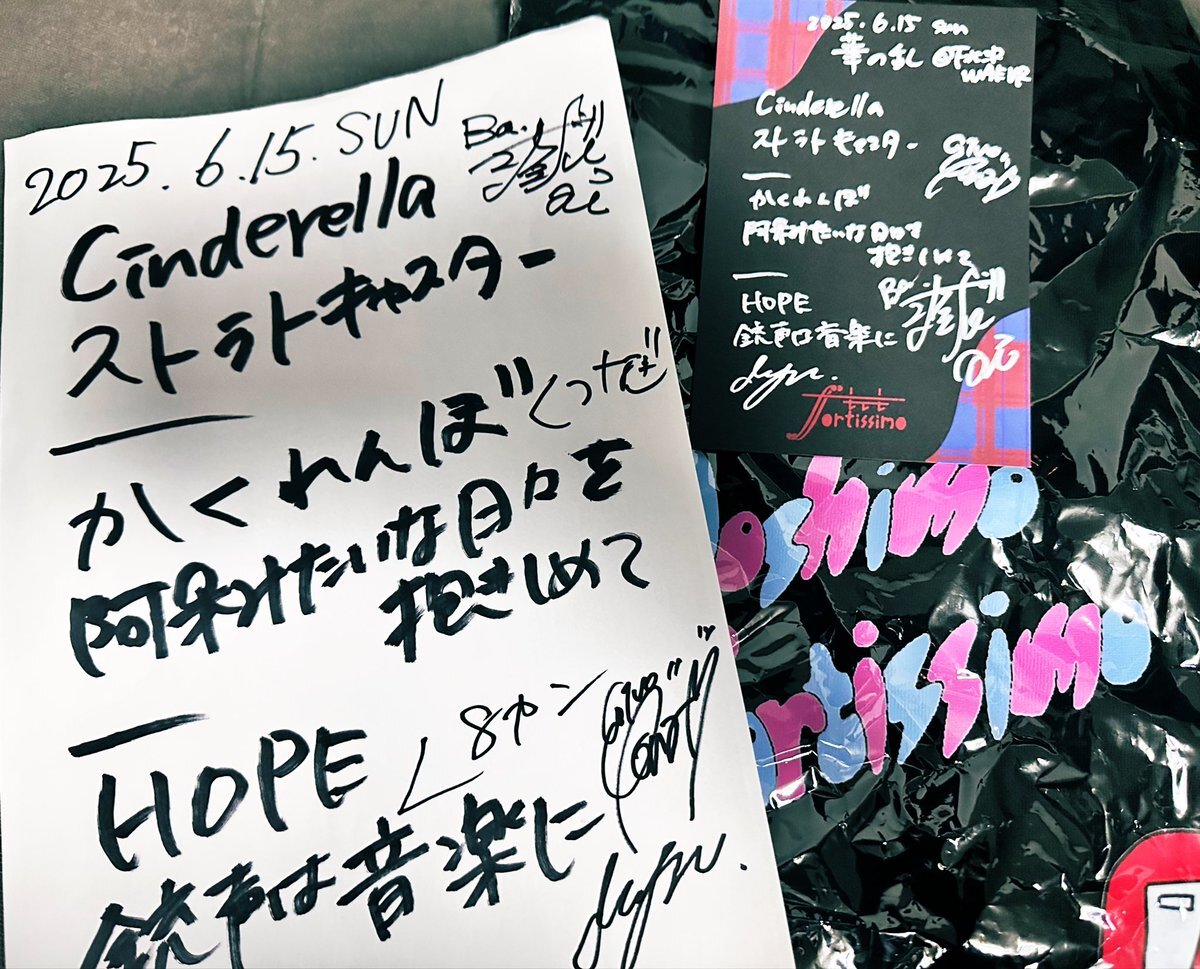 2025.6.15.SUN
Ba.
Cinderella
ストラトキャスター
かくれんぼ
くっつぜ
阿呆みたいな日々を
抱きしめて
HOPE
8カン
銃声は音楽に
2025.6.15 sun
華の乱 @下北沢
WAVER
Cinderella
ストラトキャスター
かくれんぼ
阿呆みたいな日々を
抱きしめて
Ba.
HOPE
銃声は音楽に
fortissimo
fortissimo